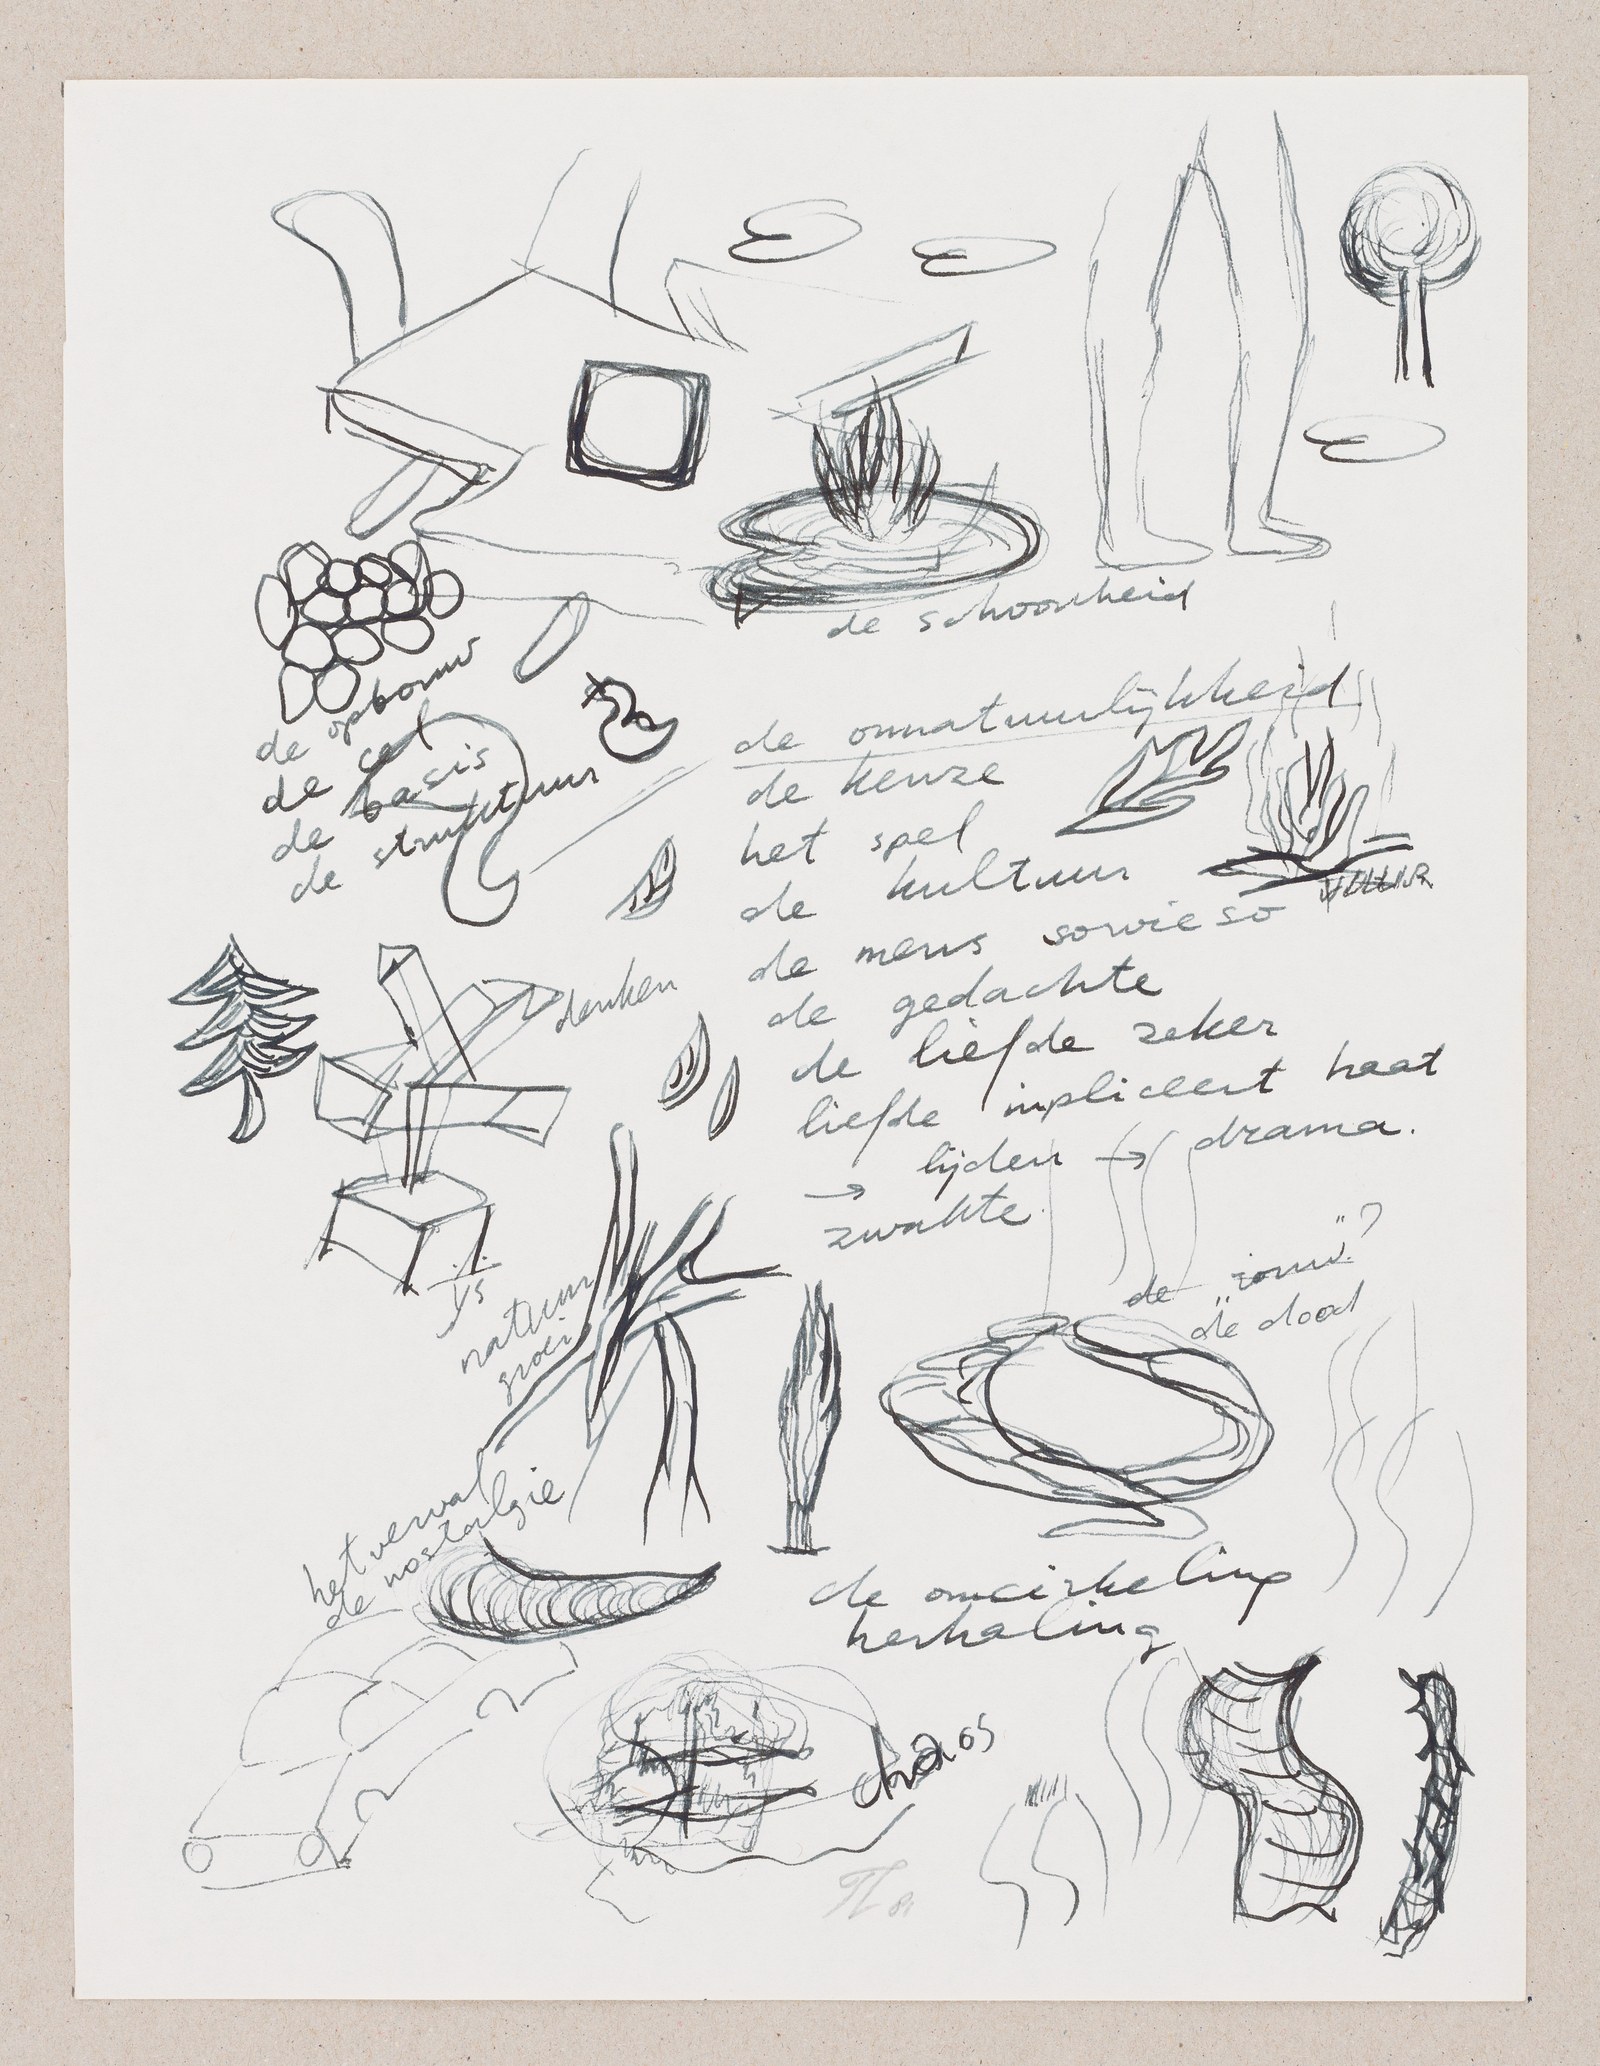 de schoonheid
de opbouw
de cel
de basis
de struktuur
de onnatuurlijkheid
de keuze
het spel
de kultuur
VUUR
de mens sowieso
de gedachte
denken
de liefde zeker
liefde inpliceert haat
→ lijden → drama.
zwakte.
ijs
natuur
groei
de "rouw"?
de dood
het verval
de nostalgie
de omcirkeling
herhaling
chaos